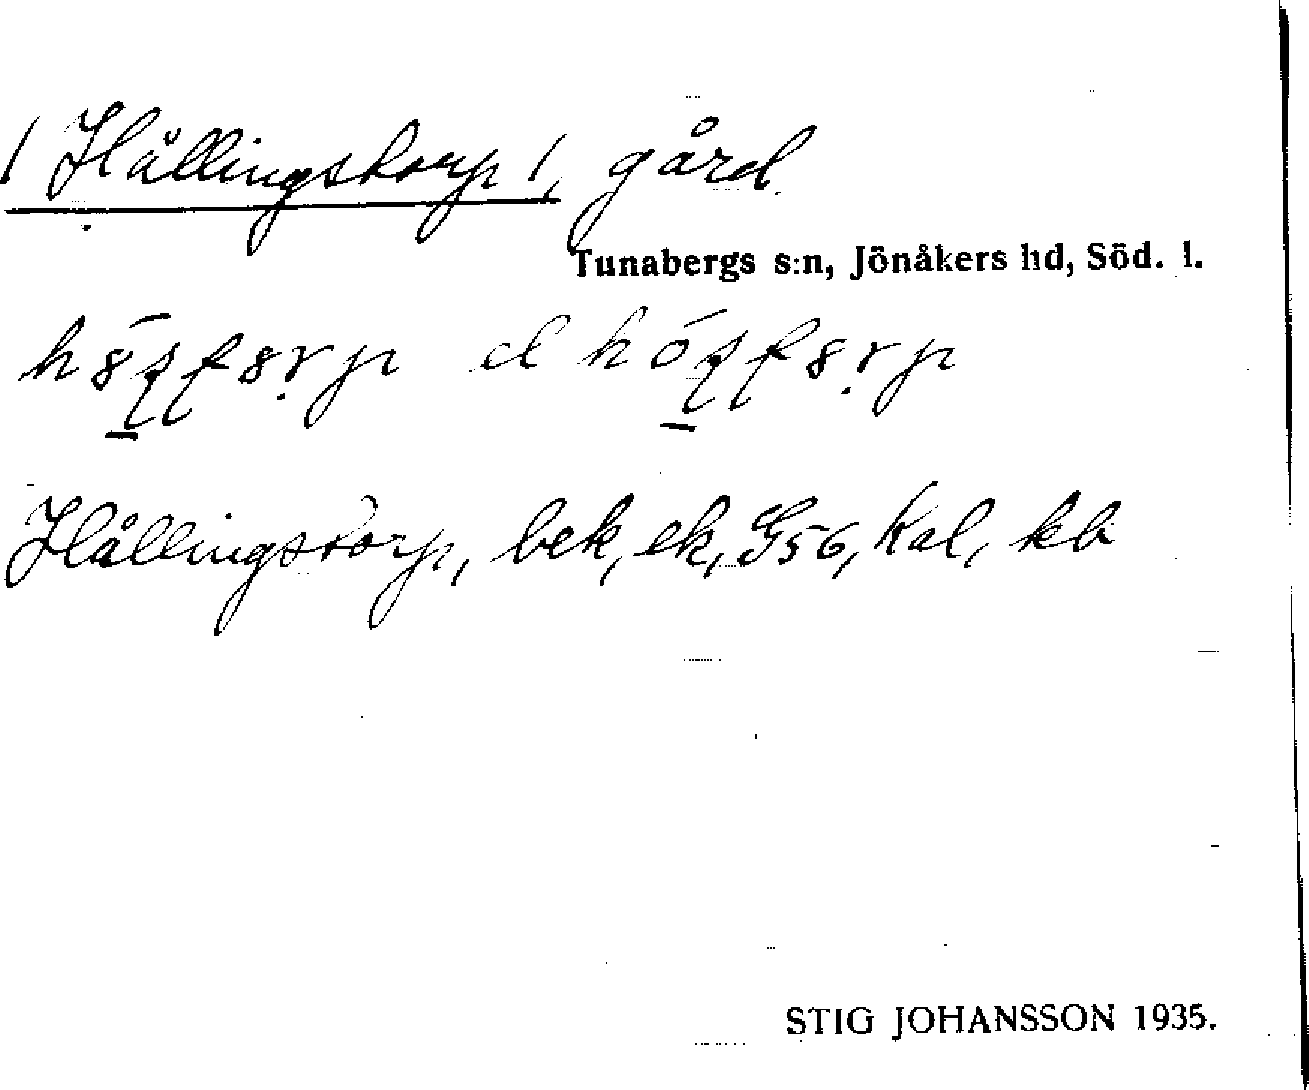 / Hållingstorp /, gård
Tunabergs s:n, Jönåkers hd, Söd. l.
el
Hållingstorp, bek, ek, G56, Kal, kb
STIG JOHANSSON 1935.